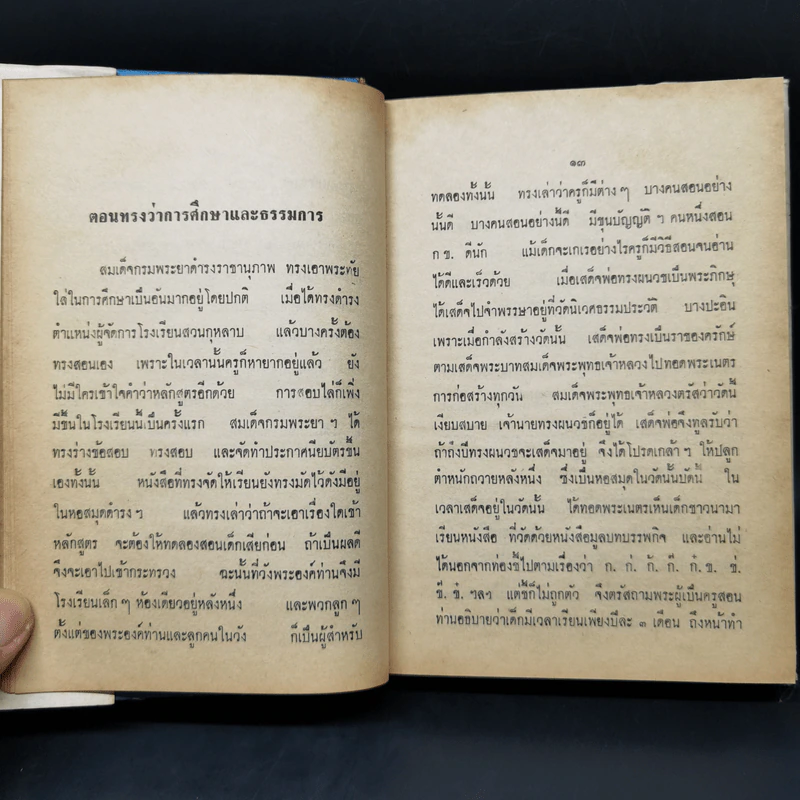 ตอนทรงว่าการศึกษาและธรรมการ
สมเด็จกรมพระยาดำรงราชานุภาพ ทรงเอาพระทัย
ใส่ในการศึกษาเป็นอันมากอยู่โดยปกติ เมื่อได้ทรงดำรง
ตำแหน่งผู้จัดการโรงเรียนสวนกุหลาบ แล้วบางครั้งต้อง
ทรงสอนเอง เพราะในเวลานั้นครูก็หายากอยู่แล้ว ยัง
ไม่มีใครเข้าใจคำว่าหลักสูตรอีกด้วย การสอบไล่ก็เพิ่ง
มีขึ้นในโรงเรียนนี้เป็นครั้งแรก สมเด็จกรมพระยา ฯ ได้
ทรงร่างข้อสอบ ทรงสอบ และจัดทำประกาศนียบัตรขึ้น
เองทั้งนั้น หนังสือที่ทรงจัดให้เรียนยังทรงมัดไว้ดังมีอยู่
ในหอสมุดดำรง ฯ แล้วทรงเล่าว่าถ้าจะเอาเรื่องใดเข้า
หลักสูตร จะต้องให้ทดลองสอนเด็กเสียก่อน ถ้าเป็นผลดี
จึงจะเอาไปเข้ากระทรวง ฉะนั้นที่วังพระองค์ท่านจึงมี
โรงเรียนเล็ก ๆ ห้องเดียวอยู่หลังหนึ่ง และพวกลูก ๆ
ตั้งแต่ของพระองค์ท่านและลูกคนในวัง ก็เป็นผู้สำหรับ
๑๓
ทดลองทั้งนั้น ทรงเล่าว่าครูก็มีต่าง ๆ บางคนสอนอย่าง
นั้นดี บางคนสอนอย่างนี้ดี มีขุนบัญญัติ ฯ คนหนึ่งสอน
ก ข. ดีนัก แม้เด็กจะเกเรอย่างไรครูก็มีวิธีสอนจนอ่าน
ได้ดีและเร็วด้วย เมื่อเสด็จพ่อทรงผนวชเป็นพระภิกษุ
ได้เสด็จไปจำพรรษาอยู่ที่วัดนิเวศธรรมประวัติ บางปะอิน
เพราะเมื่อกำลังสร้างวัดนั้น เสด็จพ่อทรงเป็นราชองครักษ์
ตามเสด็จพระบาทสมเด็จพระพุทธเจ้าหลวงไปทอดพระเนตร
การก่อสร้างทุกวัน สมเด็จพระพุทธเจ้าหลวงตรัสว่าวัดนี้
เงียบสบาย เจ้านายทรงผนวชก็อยู่ได้ เสด็จพ่อจึงทูลรับว่า
ถ้าถึงปีทรงผนวชจะเสด็จมาอยู่ จึงได้โปรดเกล้า ฯ ให้ปลูก
ตำหนักถวายหลังหนึ่ง ซึ่งเป็นหอสมุดในวัดนั้นบัดนี้ ใน
เวลาเสด็จอยู่ในวัดนั้น ได้ทอดพระเนตรเห็นเด็กชาวนามา
เรียนหนังสือ ที่วัดด้วยหนังสือมูลบทบรรพกิจ และอ่านไม่
ได้นอกจากท่องชี้ไปตามเรื่องว่า ก. ก่. ก้. ก๊. ก๋. ข. ข่.
ข้. ข๋. ฯลฯ แต่ชี้ก็ไม่ถูกตัว จึงตรัสถามพระผู้เป็นครูสอน
ท่านอธิบายว่าเด็กมีเวลาเรียนเพียงปีละ ๓ เดือน ถึงหน้าทำ